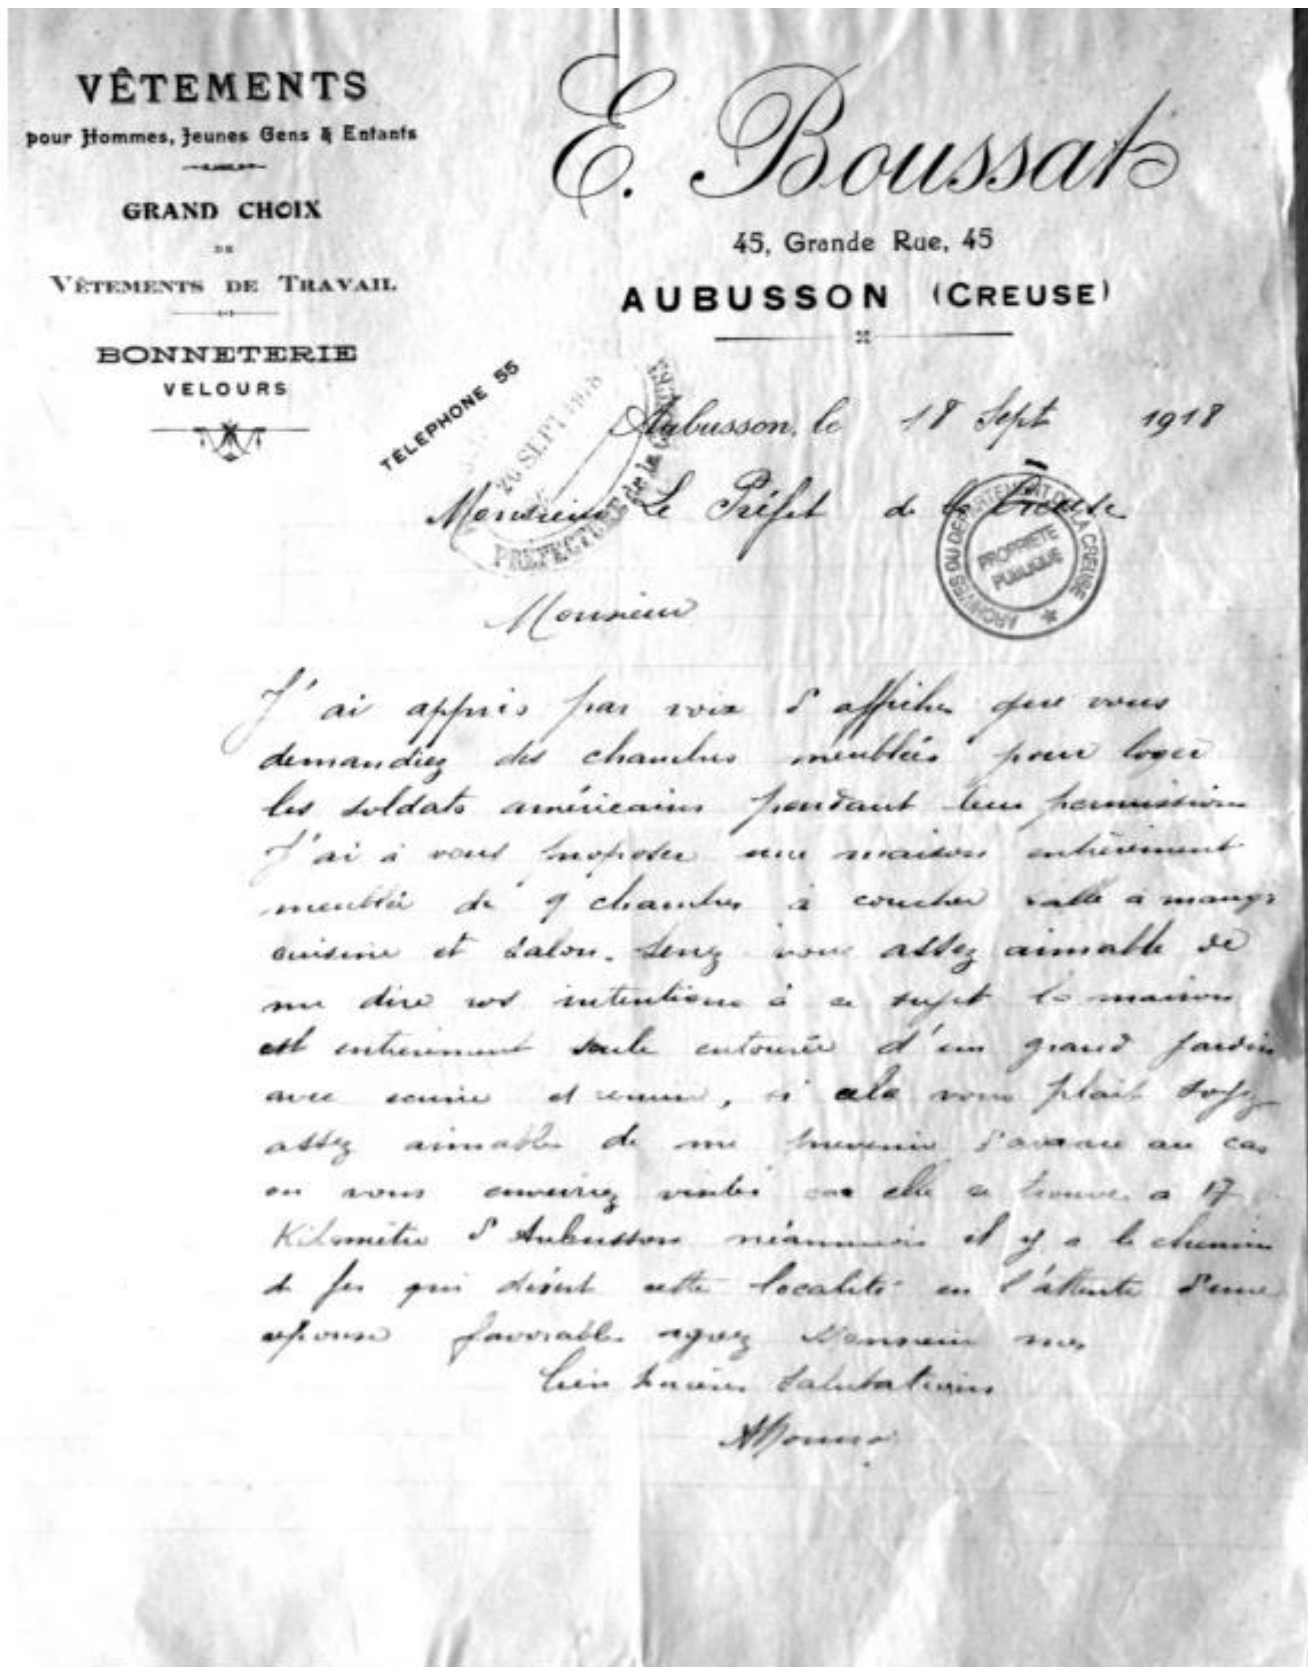 VÊTEMENTS
pour Hommes, Jeunes Gens & Enfants
GRAND CHOIX
DE
VÊTEMENTS DE TRAVAIL
BONNETERIE
VELOURS
TÉLÉPHONE 55
E. Boussat
45, Grande Rue, 45
AUBUSSON (CREUSE)
Aubusson, le 18 Sept 1918
26 SEPT 1918
PREFECTURE de la CREUSE
Monsieur Le Préfet de la Creuse
ARCHIVES DU DEPARTEMENT DE LA CREUSE
PROPRIETE
PUBLIQUE
Monsieur
J'ai appris par voix d'affiches que vous
demandiez des chambres meublées pour loger
les soldats américains pendant leur permission
J'ai à vous proposer une maison entièrement
meublée de 9 chambres à coucher salle à mang
cuisine et salon. Serez vous assez aimable de
me dire vos intentions à ce sujet la maison
est entièrement seule entourée d'un grand jardin
avec écurie et remise, si cela vous plait soyez
assez aimable de me prevenir d'avance au cas
ou vous visiter car elle ce trouve a 17
Kilomètre d'Aubusson néanmoins il y a le chemin
de fer qui désert cette localité en l'attente d'une
réponse favorable agréez Monsieur mes
bien sincères salutations